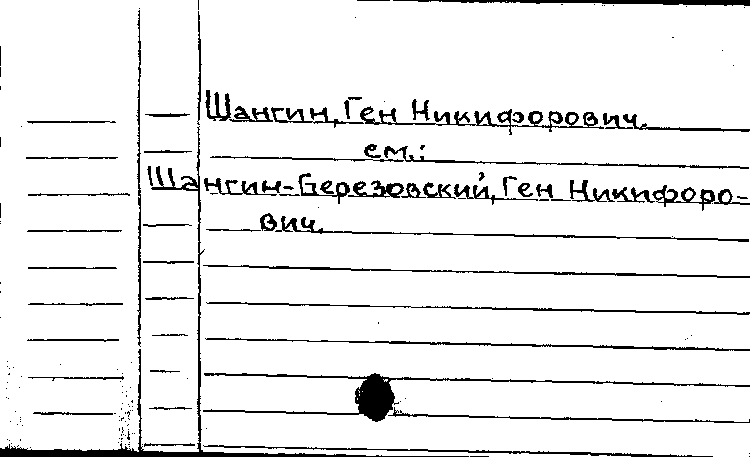 Шангин, Ген Никифорович.
см.:
Шангин-Березовский, Ген Никифоро-
вич.